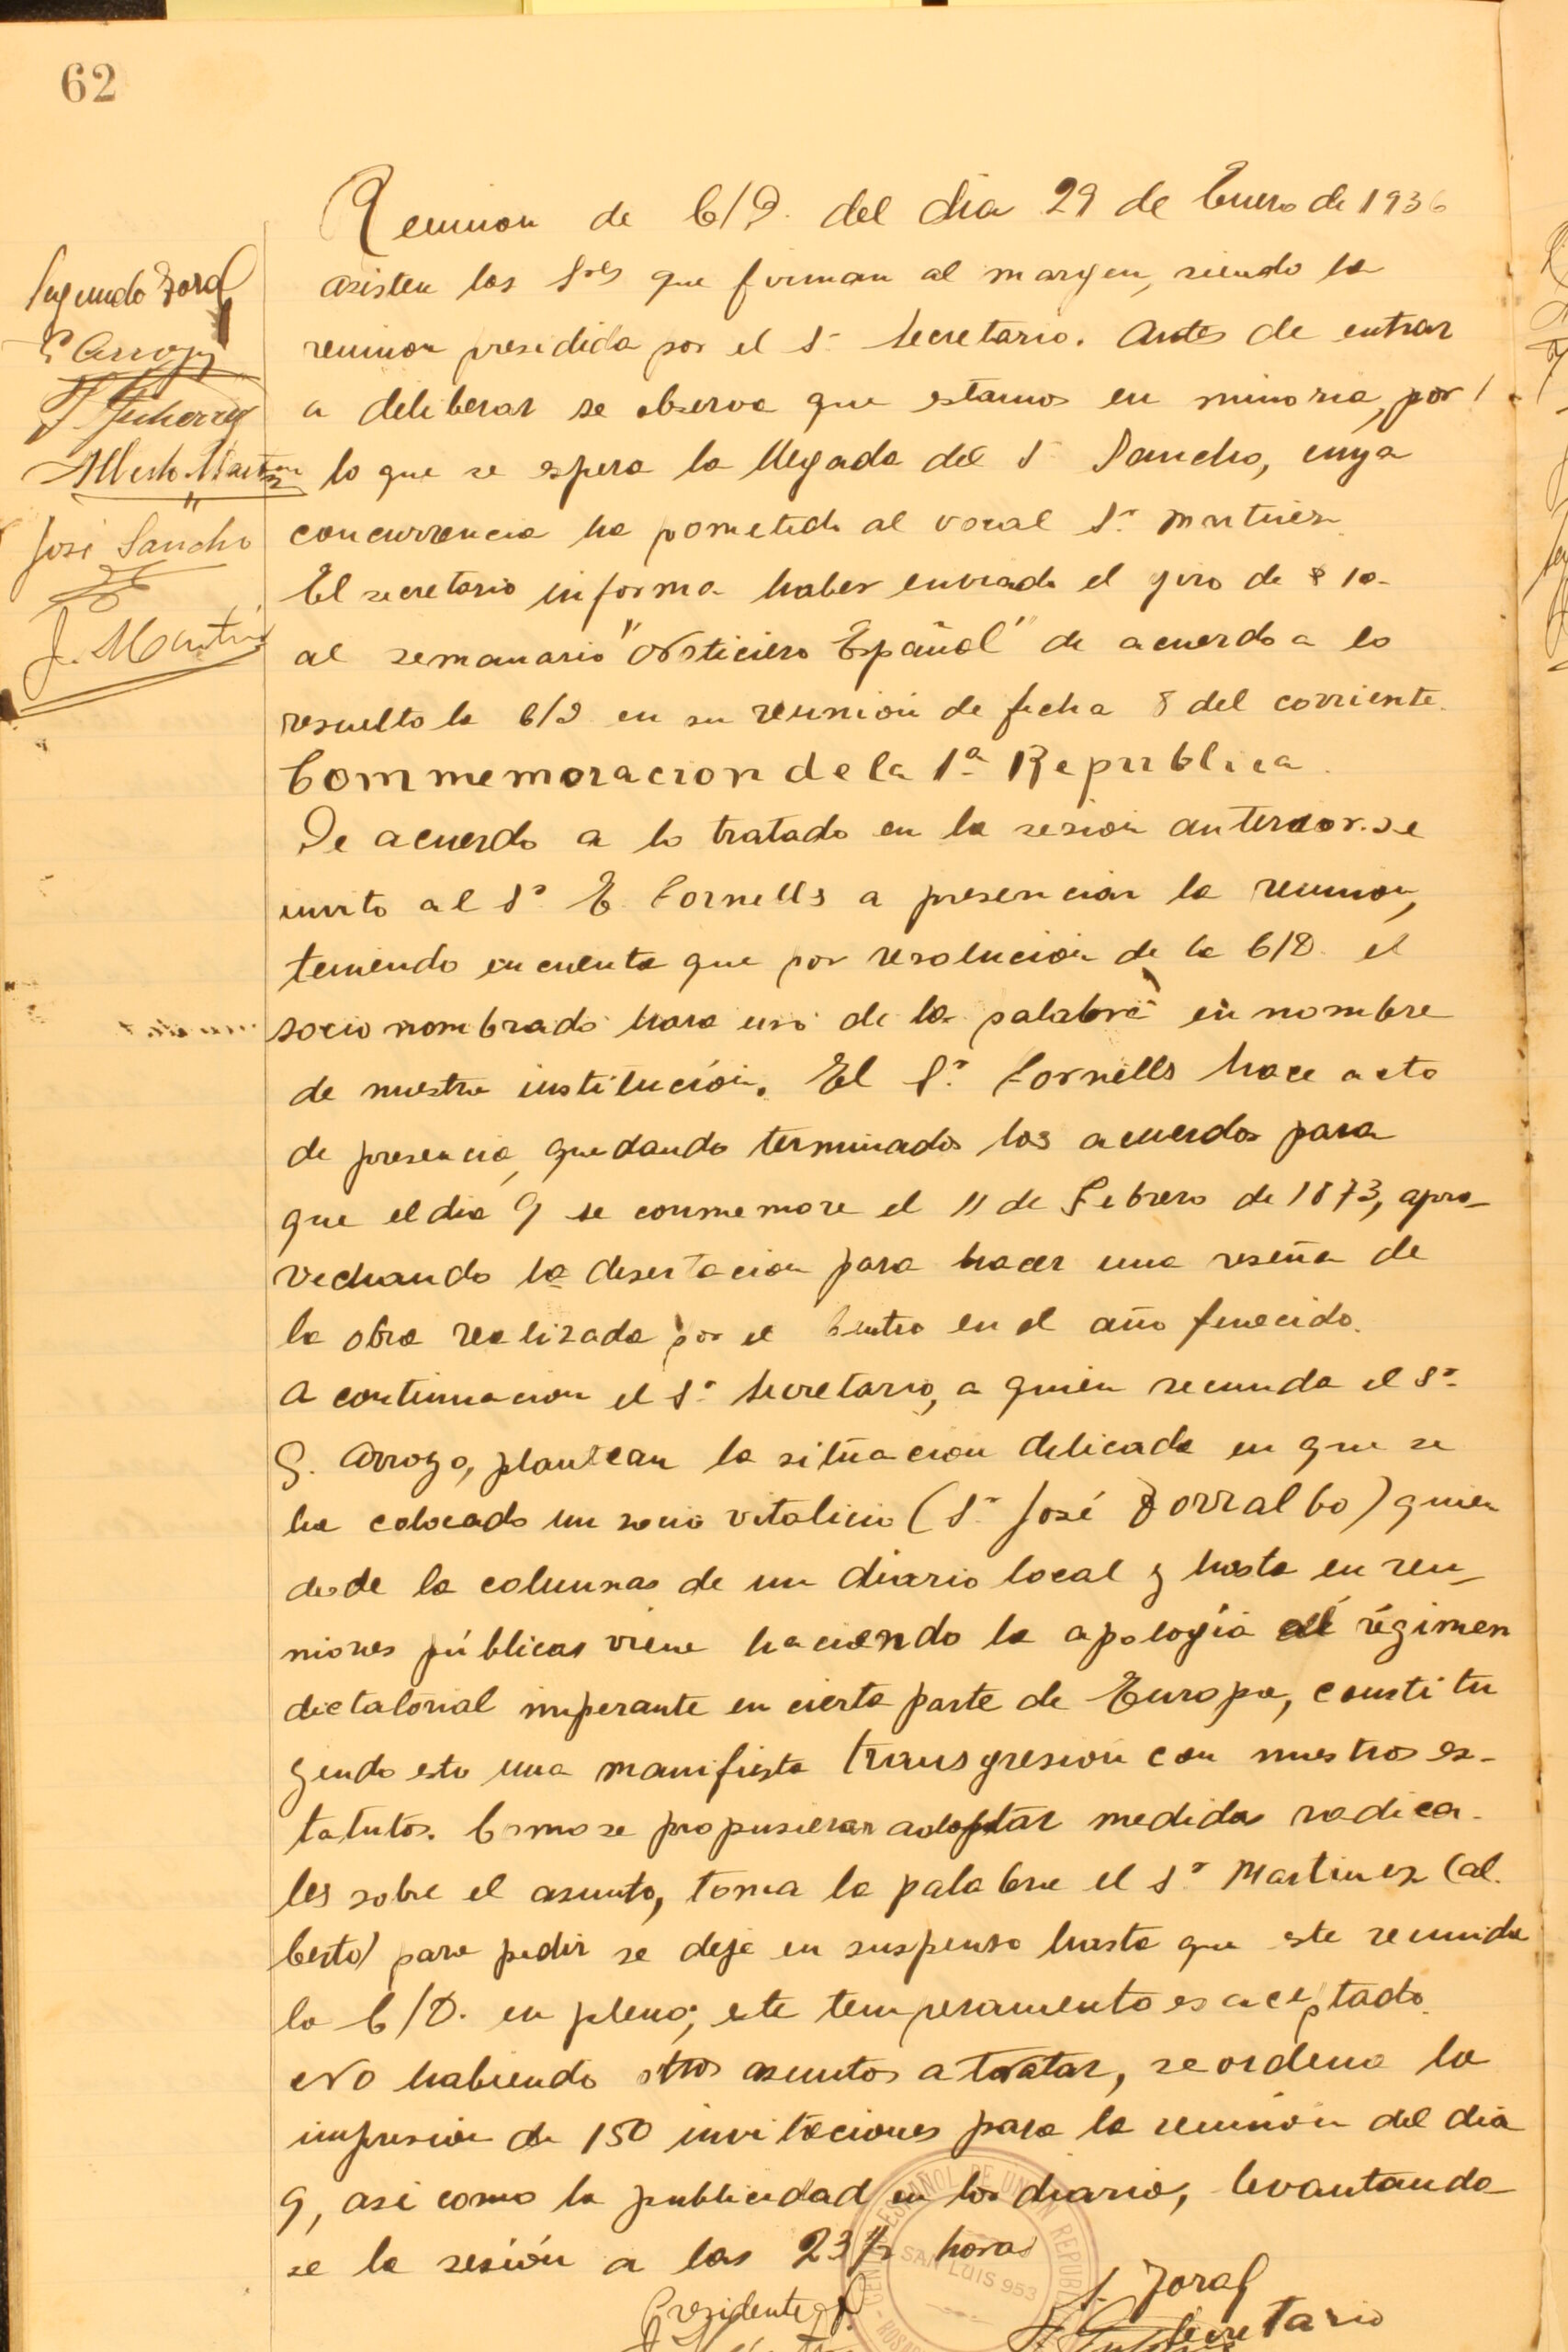 62
Reunion de C/D. del dia 29 de Enero de 1936
Segundo Toral
asisten los Sres que firman al margen, siendo la
reunion presidida por el Sr Secretario. Antes de entrar
a deliberar se observa que estamos en minoria, por
Alberto Martinez
lo que se espera la llegada del Sr Sancho, cuya
José Sancho
concurrencia ha pometido al vocal Sr. Mrtinez.
El secretario informa haber enviado el giro de $ 10-
J. Martinez
al semanario "Noticiero Español" de acuerdo a lo
resuelto la C/D en su reunion de fecha 8 del corriente.
Commemoracion de la 1ª Republica.
De acuerdo a lo tratado en la sesion anterior. se
invito al Sr. E. Cornells a presenciar la reunion,
teniendo en cuenta que por resolucion de la C/D. el
socio nombrado hara uso de la palabra en nombre
de nuestra institución. El Sr. Cornells hace acto
de presencia, quedando terminados los acuerdos para
que el dia 9 se conmemore el 11 de Febrero de 1873, apro-
vechando la desertacion para hacer una reseña de
la obra realizada por el Centro en el año fenecido.
A continuacion el Sr. Secretario, a quien secunda el Sr.
G. Arroyo, plantean la situacion delicada en que se
ha colocado un socio vitalicio (Sr. José Torralbo) quien
desde la columnas de un diario local y hasta en reu-
niones públicas viene haciendo la apología del régimen
dictatorial imperante en cierta parte de Europa, constitu
yendo esto una manifiesta transgresion con nuestros es-
tatutos. Como se propusieran adoptar medidas radica-
les sobre el asunto, toma la palabra el Sr Martinez (Al-
berto) para pedir se deje en suspenso hasta que este reunida
la C/D. en pleno; este temperamento es aceptado.
No habiendo otros asuntos a tratar, se ordena la
impresion de 150 invitaciones para la reunion del dia
9, asi como la publicidad en los diario, levantando
se la sesión a las 23½ horas
CENTRO ESPAÑOL DE UNION REPUBLI
SAN LUIS 953
S. Toral
Presidente
Secretario